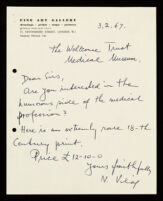 FINE ART GALLERY
drawings - prints - maps - pictures
3.2.67.
The Wellcome Trust
Medical Museum
Dear Sirs,
Are you interested in the
humorous side of the medical
profession?
Here is an extremely rare 18-th
Century print.
Price £ 12-10-0
Yours faithfully